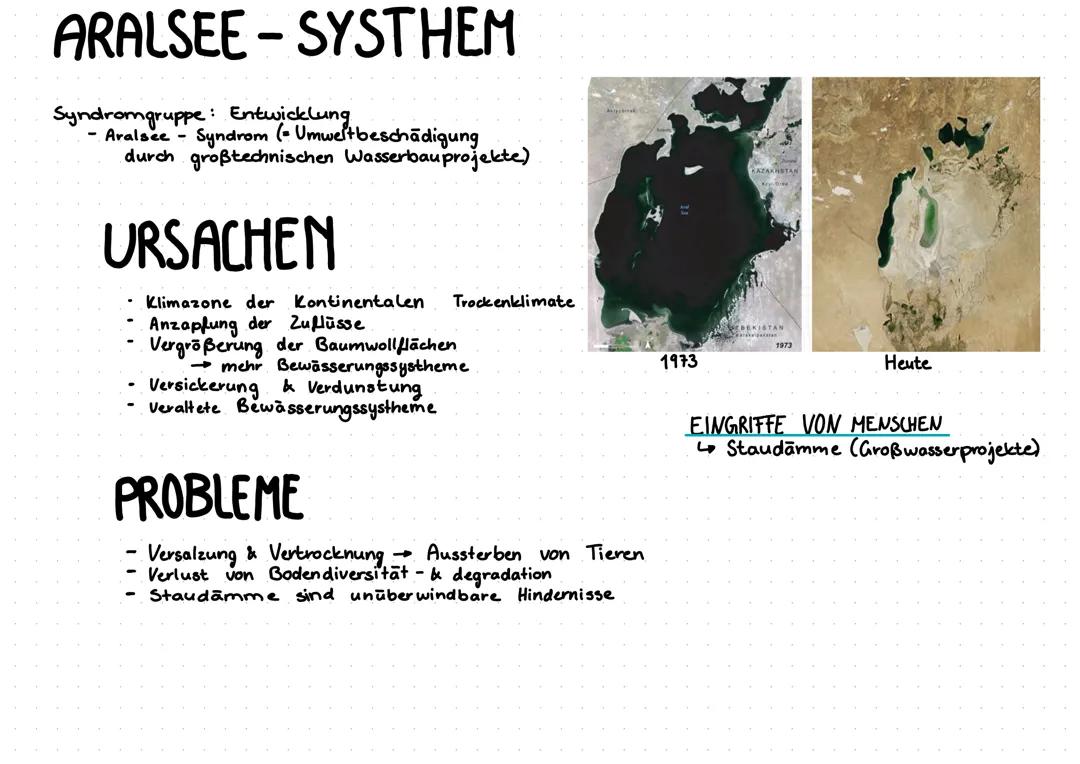 ARALSEE - SYSTHEM
Syndromgruppe: Entwicklung
- Aralsee - Syndrom (= Umweltbeschädigung
durch großtechnischen Wasserbauprojekte)
URSACHEN
· Klimazone der Kontinentalen Trockenklimate
- Anzapfung der Zuflüsse
- Vergrößerung der Baumwollflächen
→ mehr Bewässerungssystheme
- Versickerung & Verdunstung
- veraltete Bewässerungssystheme
KAZAKHSTAN
Aral
Sea
UZBEKISTAN
Karakalpakstan
1973
1973
Heute
EINGRIFFE VON MENSCHEN
↳ Staudämme (Großwasserprojekte)
PROBLEME
- Versalzung & Vertrocknung → Aussterben von Tieren
- Verlust von Bodendiversität - & degradation
- Staudämme sind unüberwindbare Hindernisse